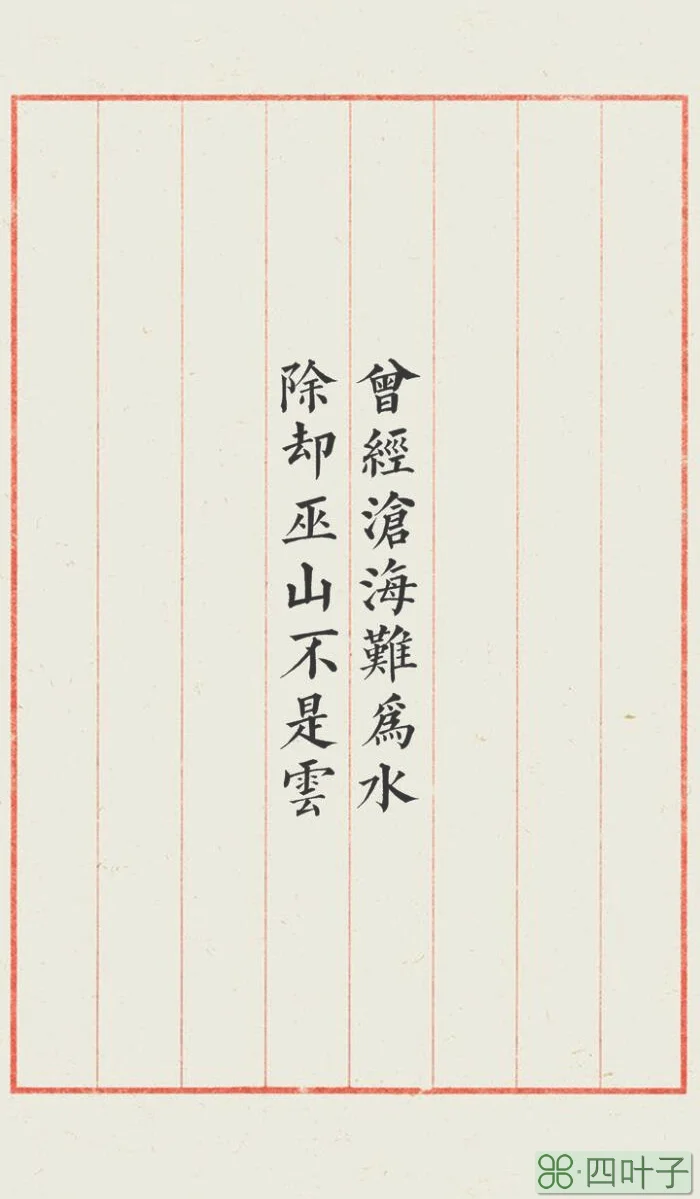 曾經滄海難爲水
除却巫山不是雲
四叶子